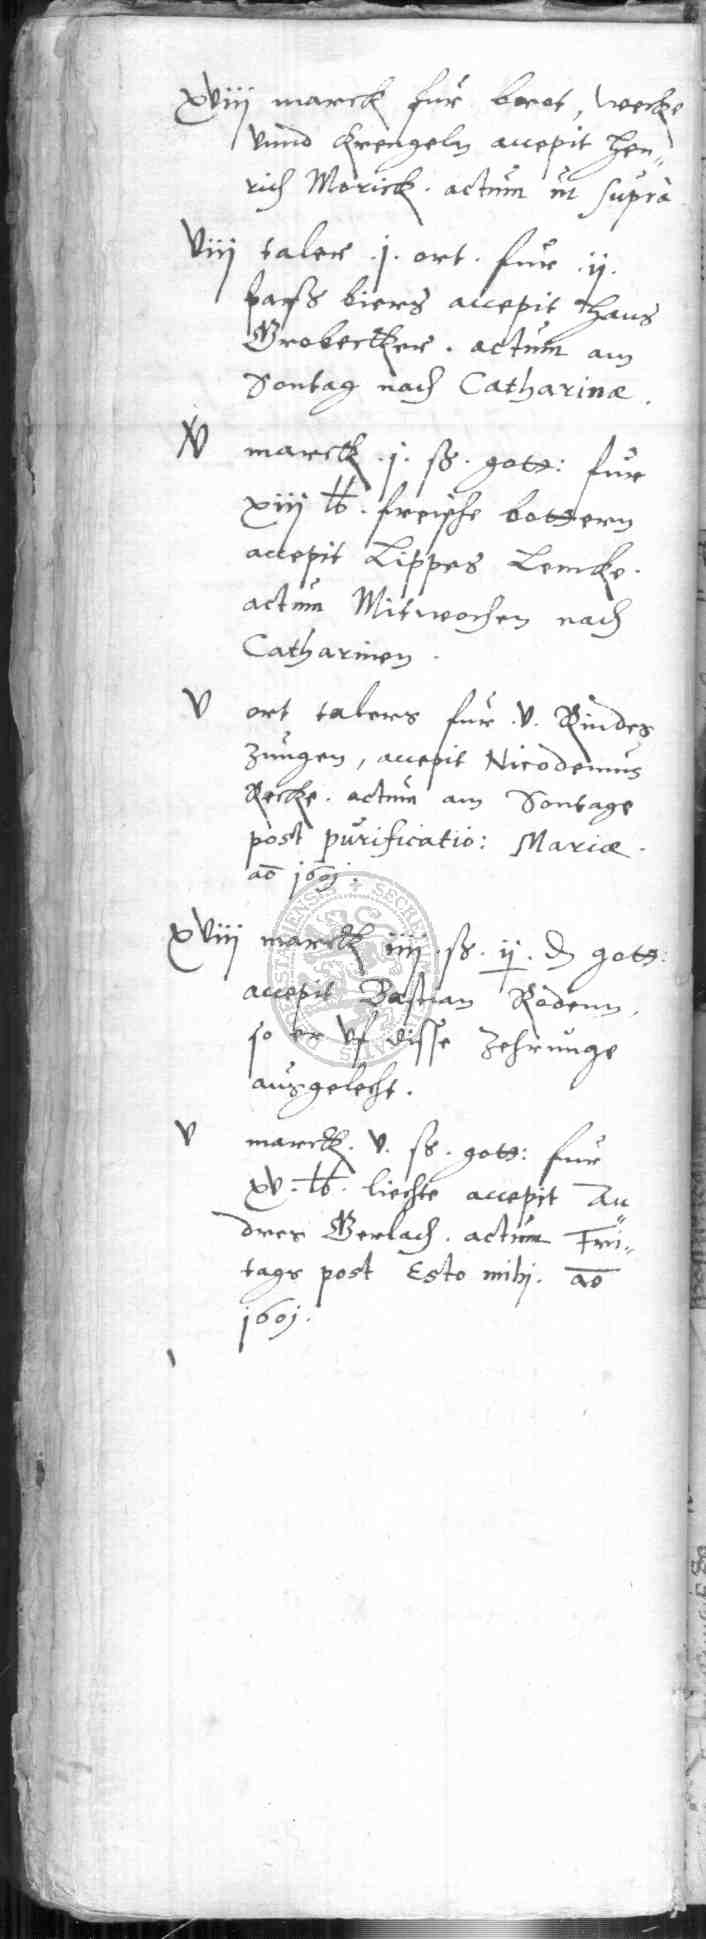 xviij marck fur brot, wecke
vnnd Krengeln accepit Hen„
rich Morick. actum ut supra
viij taler .j. ort. fur .ij.
faeß biers accepit Hans
Grobecker. actum am
Sontag nach Catharinæ.
marck .j. ß. gott: fur
xiij lb. freische bottern
accepit Lippes Lemcke.
actum Mitwochen nach
Catharinen.
V ort talers fur .v. Rindes
zungen, accepit Nicodemus
Recke. actum am Sontage
post purificatio: Mariæ.
ao 1601.
xviij marck iiij .ß. ij. ₰ gott:
accepit Bastian Rodenn,
so er vf disse Zehrunge
ausgelecht.
V marck. v. ß. gott: fur
xv. lb. liechte accepit An„
dres Gerlach. actum Fri„
tags post Esto mihj. ao
1601.
SECRETUM